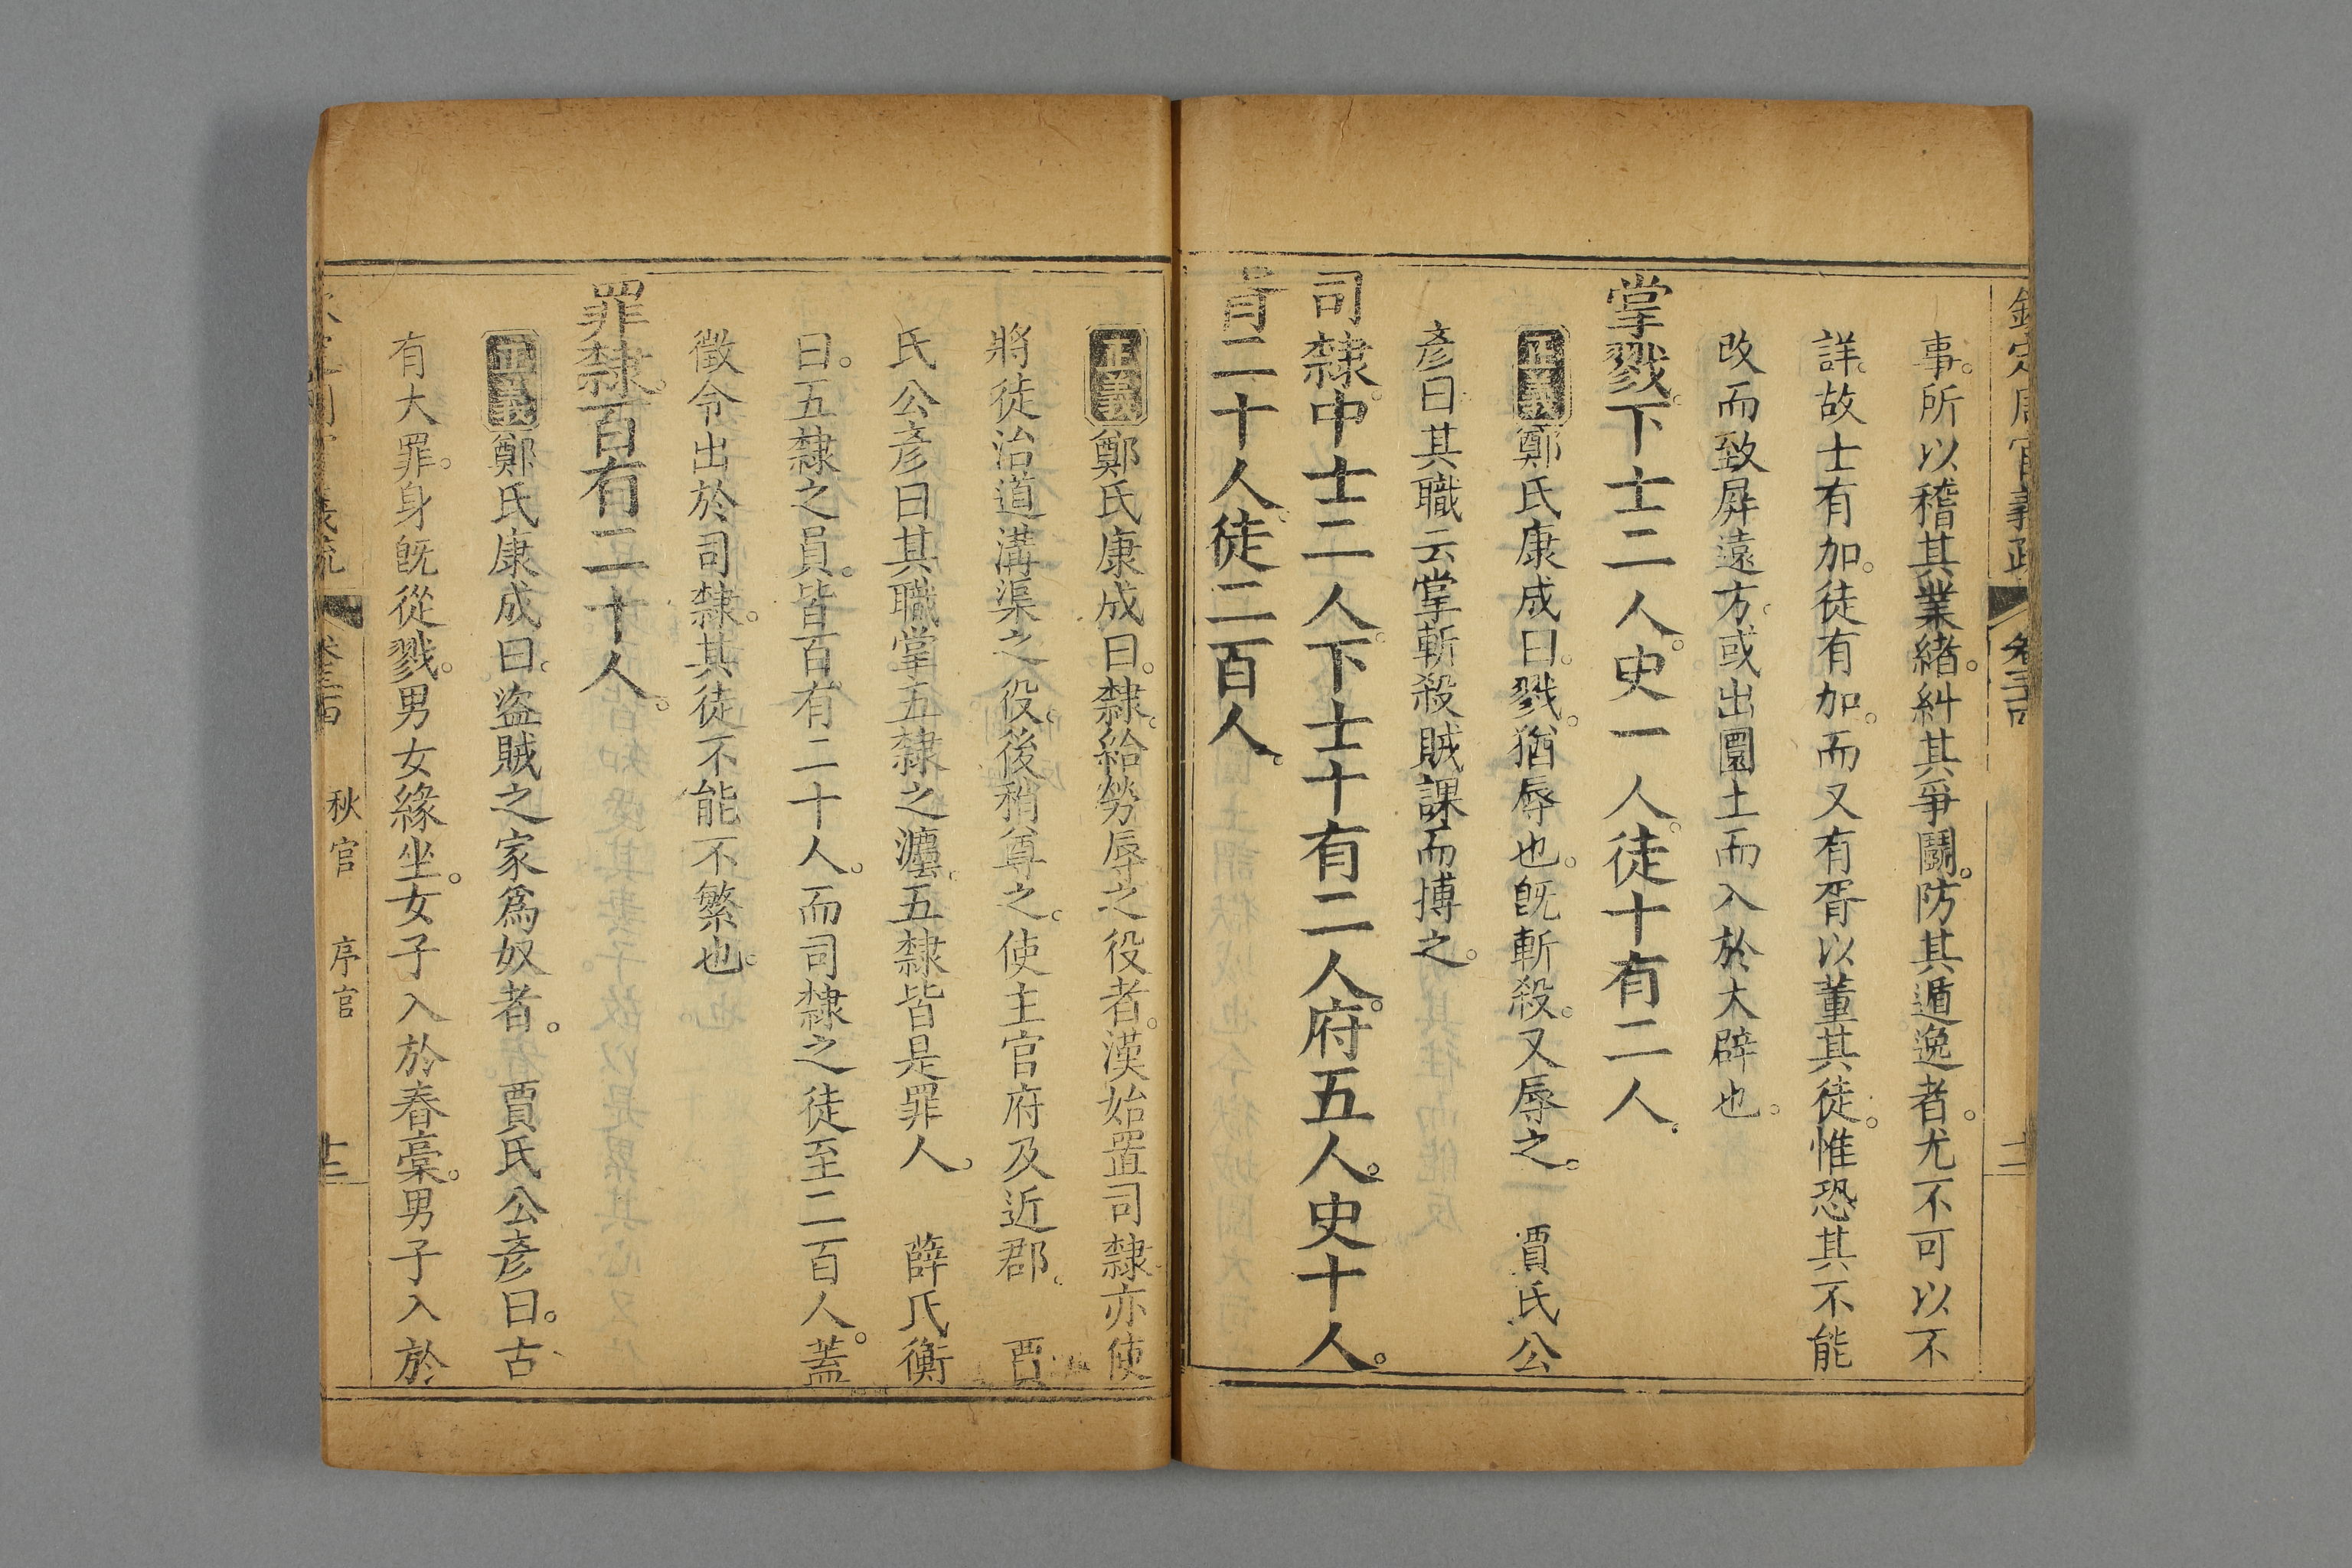 欽定周官義疏 卷三百 十二
事。所以稽其業緒。糾其爭鬭。防其遁逸者。尤不可以不
詳。故士有加。徒有加。而又有胥以董其徒。惟恐其不能
改而致屛遠方。或出圜土而入於大辟也。
掌戮。下士二人。史一人。徒十有二人。
正義鄭氏康成曰。戮。猶辱也。旣斬殺。又辱之。 賈氏公
彥曰。其職云掌斬殺賊諜而搏之。
司隸。中士二人。下士十有二人。府五人。史十人。
胥二十人。徒二百人。
正義鄭氏康成曰。隸。給勞辱之役者。漢始置司隸亦使
將徒治道溝渠之役。後稍尊之。使主官府及近郡。 賈
氏公彥曰其職掌五隸之灋。五隸皆是罪人。 薛氏衡
曰。五隸之員。皆百有二十人。而司隸之徒至二百人。蓋
徵令出於司隸。其徒不能不繁也。
罪隸。百有二十人。
正義鄭氏康成曰。盜賊之家爲奴者。 賈氏公彥曰。古
有大罪。身旣從戮。男女緣坐。女子入於舂稾。男子入於
義疏 秋官 序官 十二